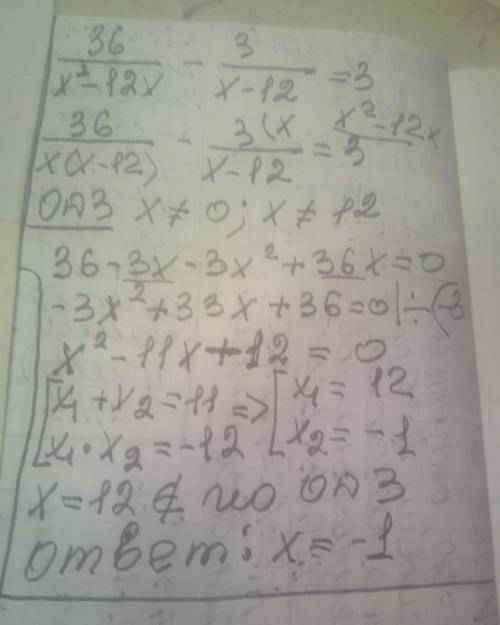 36/(x²-12x) - 3/(x-12) = 3
36/(x(x-12)) - 3(x/(x-12) = x²-12x/3
ОДЗ x ≠ 0; x ≠ 12
36-3x-3x²+36x=0
-3x²+33x+36=0|÷(-3
x²-11x-12=0
[x₁+x₂=11 => [x₁=12
[x₁·x₂=-12 [x₂=-1
x=12 ∉ по ОДЗ
ответ: x=-1